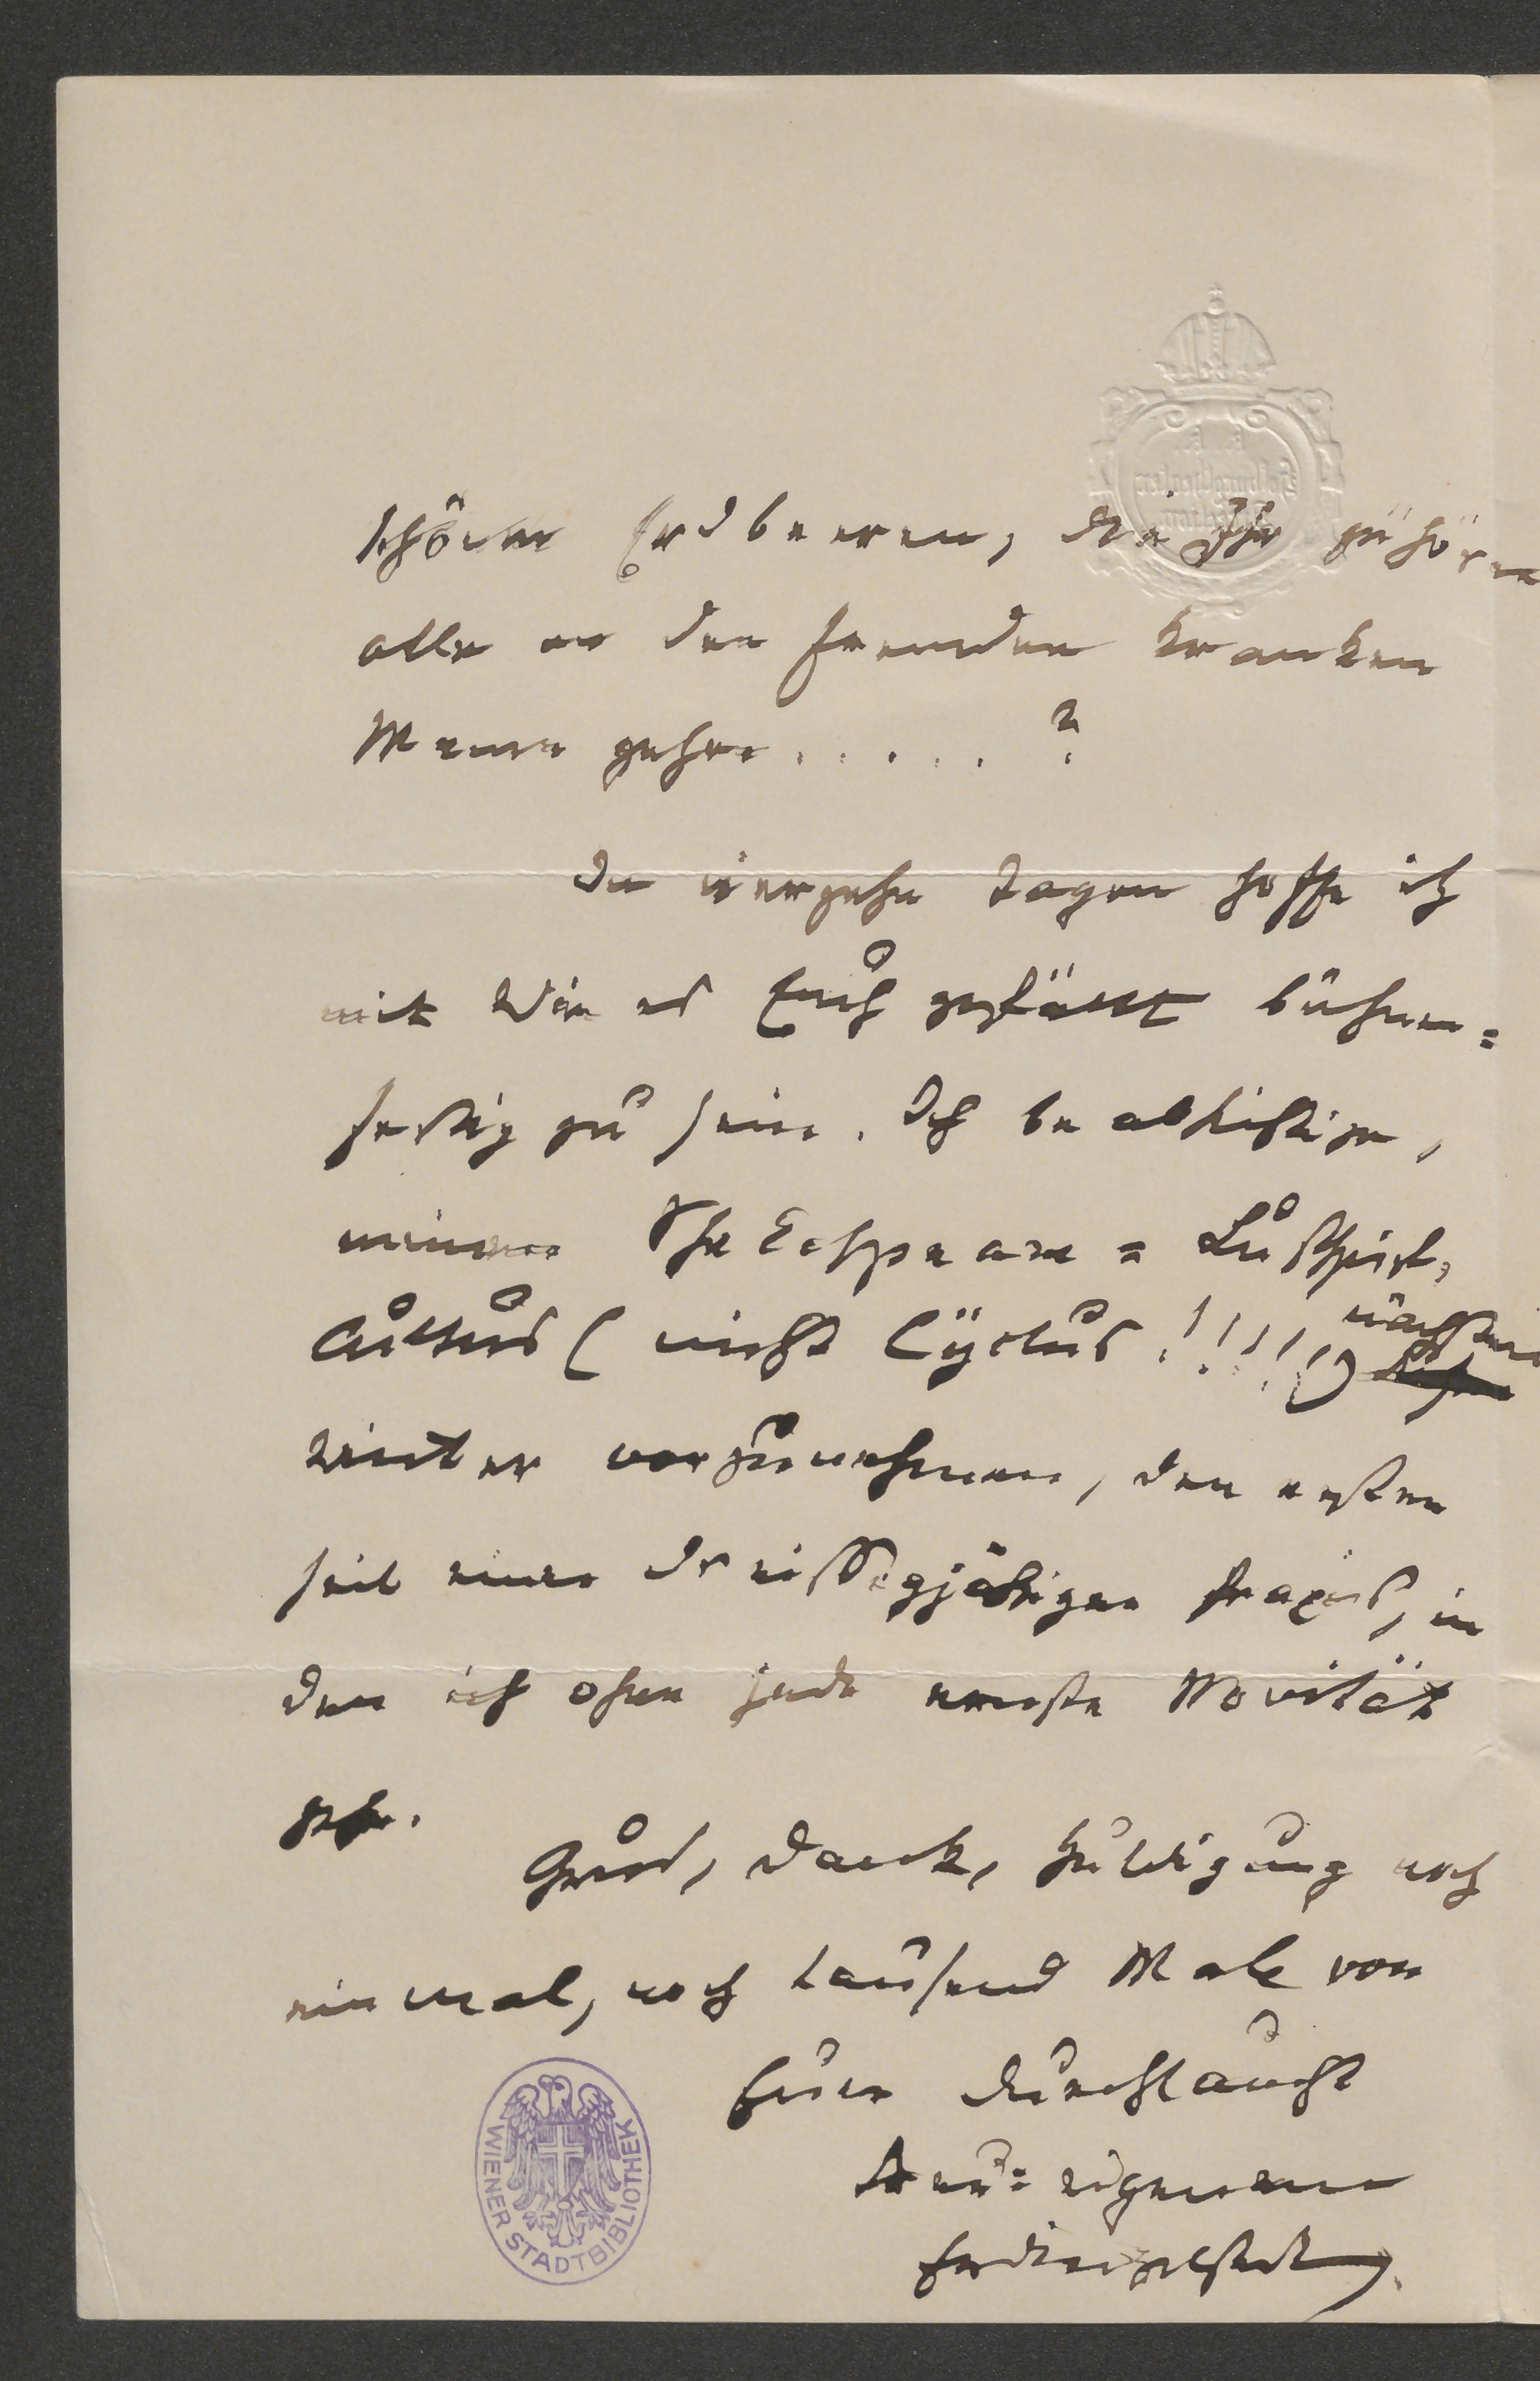 schönen Erdbeeren, die Ihr gehören
alle an den fremden kranken
Mann gehen . . . . . ?
In vierzehn Tagen hoffe ich
mit Wie es Euch gefällt bühnen=
fertig zu sein. Ich beabsichtige,
meinen Shakespeare = Lustspiel=
Cultus (nicht Cyclus!!!!!) nächsten
Winter vorzunehmen, den ersten
seit einer dreißigjährigen Praxis, in
den ich ohne jede ernste Novität
geh.
Gruß, Dank, Huldigung noch
einmal, noch tausend Male von
Euer Durchlaucht
treu= eigenem
FrDingelstedt
WIENER STADTBIBLIOTHEK